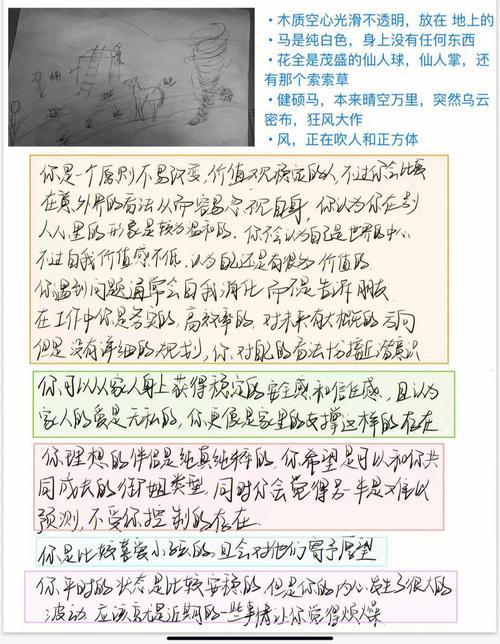 • 木质空心光滑不透明，放在 地上的
• 马是纯白色，身上没有任何东西
• 花全是茂盛的仙人球，仙人掌，还
有那个索索草
• 健硕马，本来晴空万里，突然乌云
密布，狂风大作
• 风，正在吹人和正方体
你是一个原则不易改变，价值观稳定的人，不过你会比较
在意外界的看法从而容易忽视自身，你认为你在别
人心里的形象是较为温和的，你不会认为自己是世界的中心
不过自我价值感不低，认为自己还是有很多价值的
你遇到问题通常会自我消化而不是告诉朋友
在工作中你是务实的，高效率的，对未来有大概的方向
但是没有详细的规划，你对自己的看法比较接近潜意识
你可以从家人身上获得稳定的安全感和信任感，且认为
家人的爱是无私的，你更像是家里的支撑这样的存在
你理想的伴侣是纯真纯粹的，你希望是可以和你共
同成长的御姐类型，同时你会觉得另一半是难以
预测，不受你控制的存在
你是比较喜爱小孩的，且会对他们寄予厚望
你平时的状态是比较安稳的，但是你的内心发生了很大的
波动，应该就是近期的一些事情让你觉得烦躁